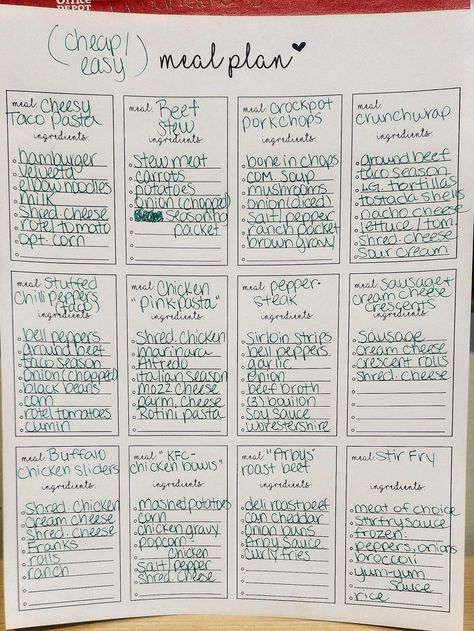 Office
DEPOT
(cheap/
easy)
meal plan
meal: Cheesy
Taco Pasta
ingredients:
hamburger
velveeta
elbow noodles
milk
shred. cheese
rotel tomato
opt. corn
meal: Beef
Stew
ingredients:
stew meat
carrots
potatoes
onion (chopped)
seasoning
packet
meal: crockpot
porkchops
ingredients:
bone in chops
com. soup
mushrooms
onion (diced)
salt/pepper
ranch packet
brown gravy
meal:
crunchwrap
ingredients:
ground beef
taco season
LG. tortillas
tostada shells
nacho cheese
lettuce/tom.
shred. cheese
sour cream
meal: stuffed
chilli peppers
(taco)
ingredients:
bell peppers
ground beef
taco season
onion (chopped)
black beans
corn
rotel tomatoes
cumin
meal: Chicken
"Pink pasta"
ingredients:
shred. chicken
marinara
Alfredo
italian season
mozz cheese
parm. cheese
Rotini pasta
meal: pepper-
steak
ingredients:
sirloin strips
bell peppers
garlic
onion
beef broth
(3) bouilon
soy sauce
worestershire
meal: sausage +
cream cheese
crescents
ingredients:
sausage
cream cheese
crescent rolls
shred. cheese
meal: Buffalo
chicken sliders
ingredients:
shred. chicken
cream cheese
shred. cheese
Franks
rolls
ranch
meal: "KFC-
chicken bowls"
ingredients:
mashed potatoes
corn
chicken gravy
popcorn
chicken
salt/pepper
shred. cheese
meal: "Arbys"
roast beef
ingredients:
deli roast beef
can cheddar
onion buns
Arby sauce
curly fries
meal: stir Fry
ingredients:
meat of choice
stirfry sauce
frozen:
peppers, onions
broccoli
yum-yum
sauce
rice